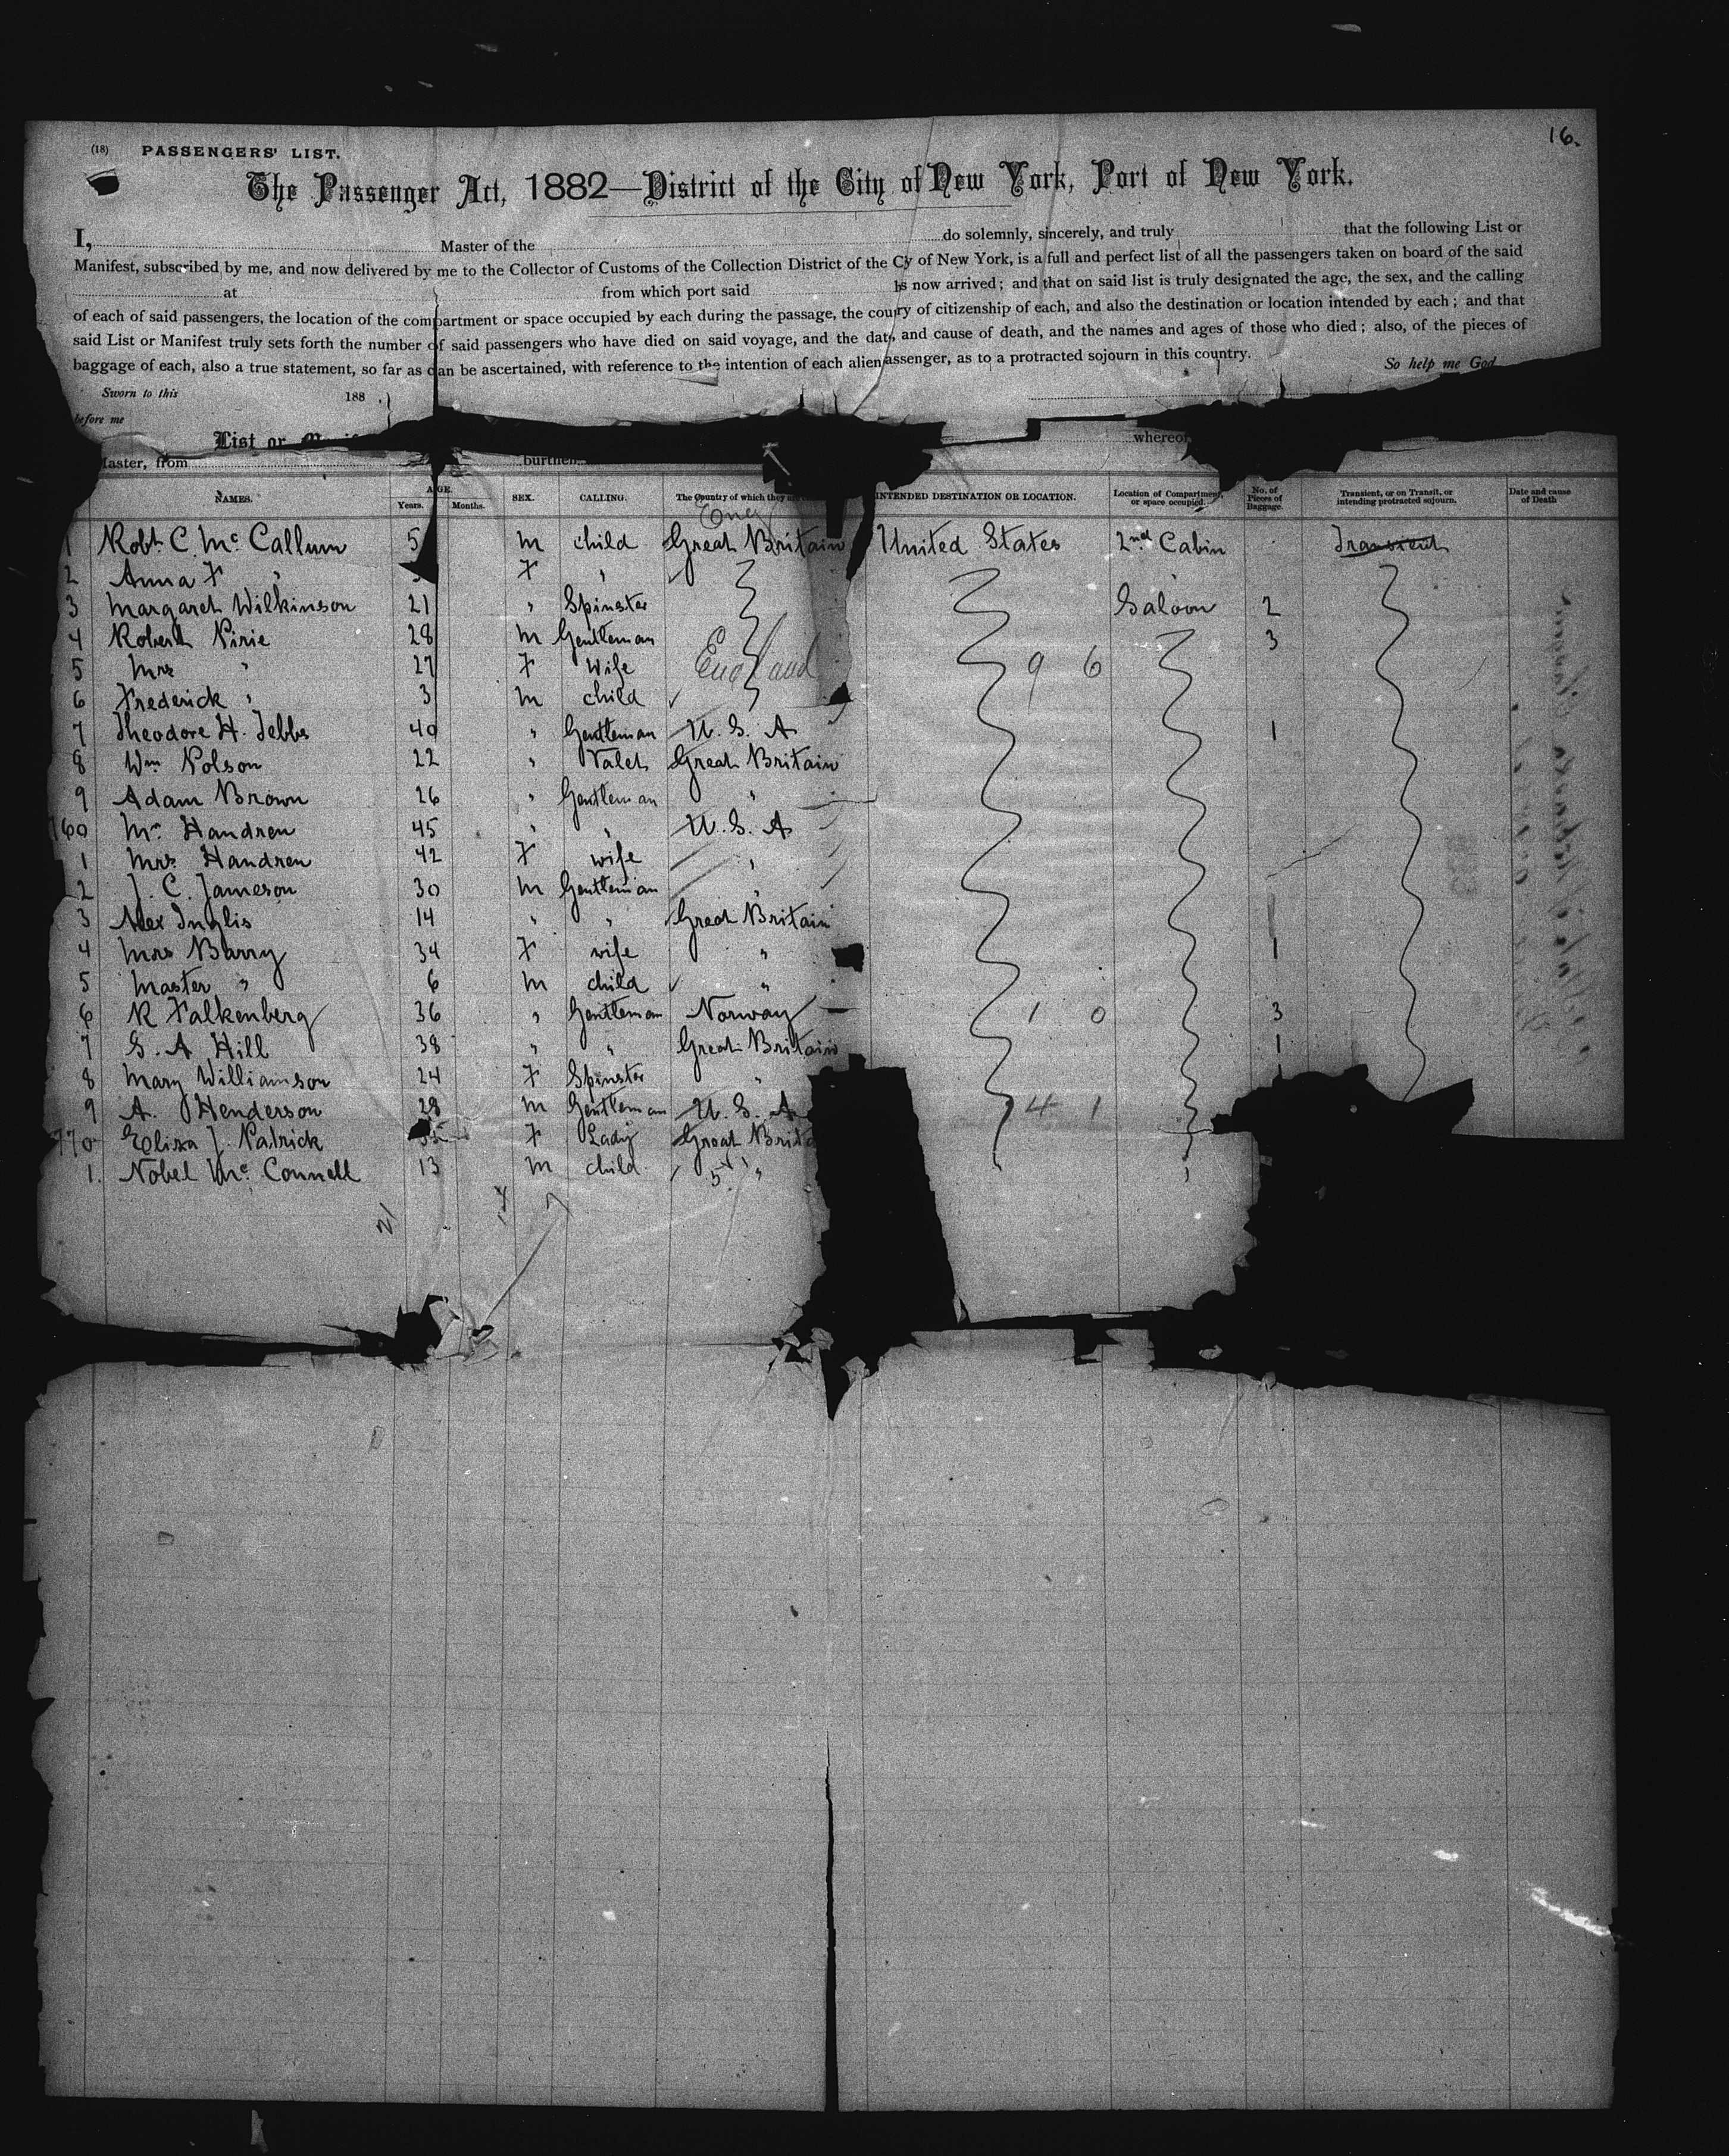 16.
(18) PASSENGERS' LIST.
The Passenger Act, 1882—District of the City of New York, Port of New York.
I, Master of the do solemnly, sincerely, and truly that the following List or
Manifest, subscribed by me, and now delivered by me to the Collector of Customs of the Collection District of the C y of New York, is a full and perfect list of all the passengers taken on board of the said
at from which port said h s now arrived; and that on said list is truly designated the age, the sex, and the calling
of each of said passengers, the location of the compartment or space occupied by each during the passage, the cou ry of citizenship of each, and also the destination or location intended by each; and that
said List or Manifest truly sets forth the number of said passengers who have died on said voyage, and the dat , and cause of death, and the names and ages of those who died; also, of the pieces of
baggage of each, also a true statement, so far as can be ascertained, with reference to the intention of each alien assenger, as to a protracted sojourn in this country. So help me God
Sworn to this 188 .
before me
List or whereof
Master, from burthen
NAMES. AGE. Years. Months. SEX. CALLING. The Country of which they a INTENDED DESTINATION OR LOCATION. Location of Compartment, or space occupied. No. of Pieces of Baggage. Transient, or on Transit, or intending protracted sojourn. Date and cause of Death
Eng
1 Robt. C. Mc. Callum 5 m child Great Britain United States 2nd Cabin Transient
2 Anna F " F "
3 Margaret Wilkinson 21 " Spinster Saloon 2
4 Robert Pirie 28 m Gentleman 3
5 Mrs " 27 F Wife England 9 6
6 Frederick " 3 m child
7 Theodore H. Tebbs 40 " Gentleman U. S. A 1
8 Wm Polson 22 " Valet Great Britain
9 Adam Brown 26 " Gentleman "
760 Mr. Handren 45 " " U. S. A
1 Mrs. Handren 42 F wife "
2 J. C. Jameson 30 m Gentleman "
3 Alex Inglis 14 " " Great Britain
4 Mrs Barry 34 F wife " 1
5 Master " 6 m child "
6 R Falkenberg 36 " Gentleman Norway 1 0 3
7 S. A Hill 38 " " Great Britain 1
8 Mary Williamson 24 F Spinster "
9 A. Henderson 28 m Gentleman U. S. A 4 1
770 Eliza J. Patrick F Lady Great Brita
1. Nobel Mc. Connell 13 m child 5 "